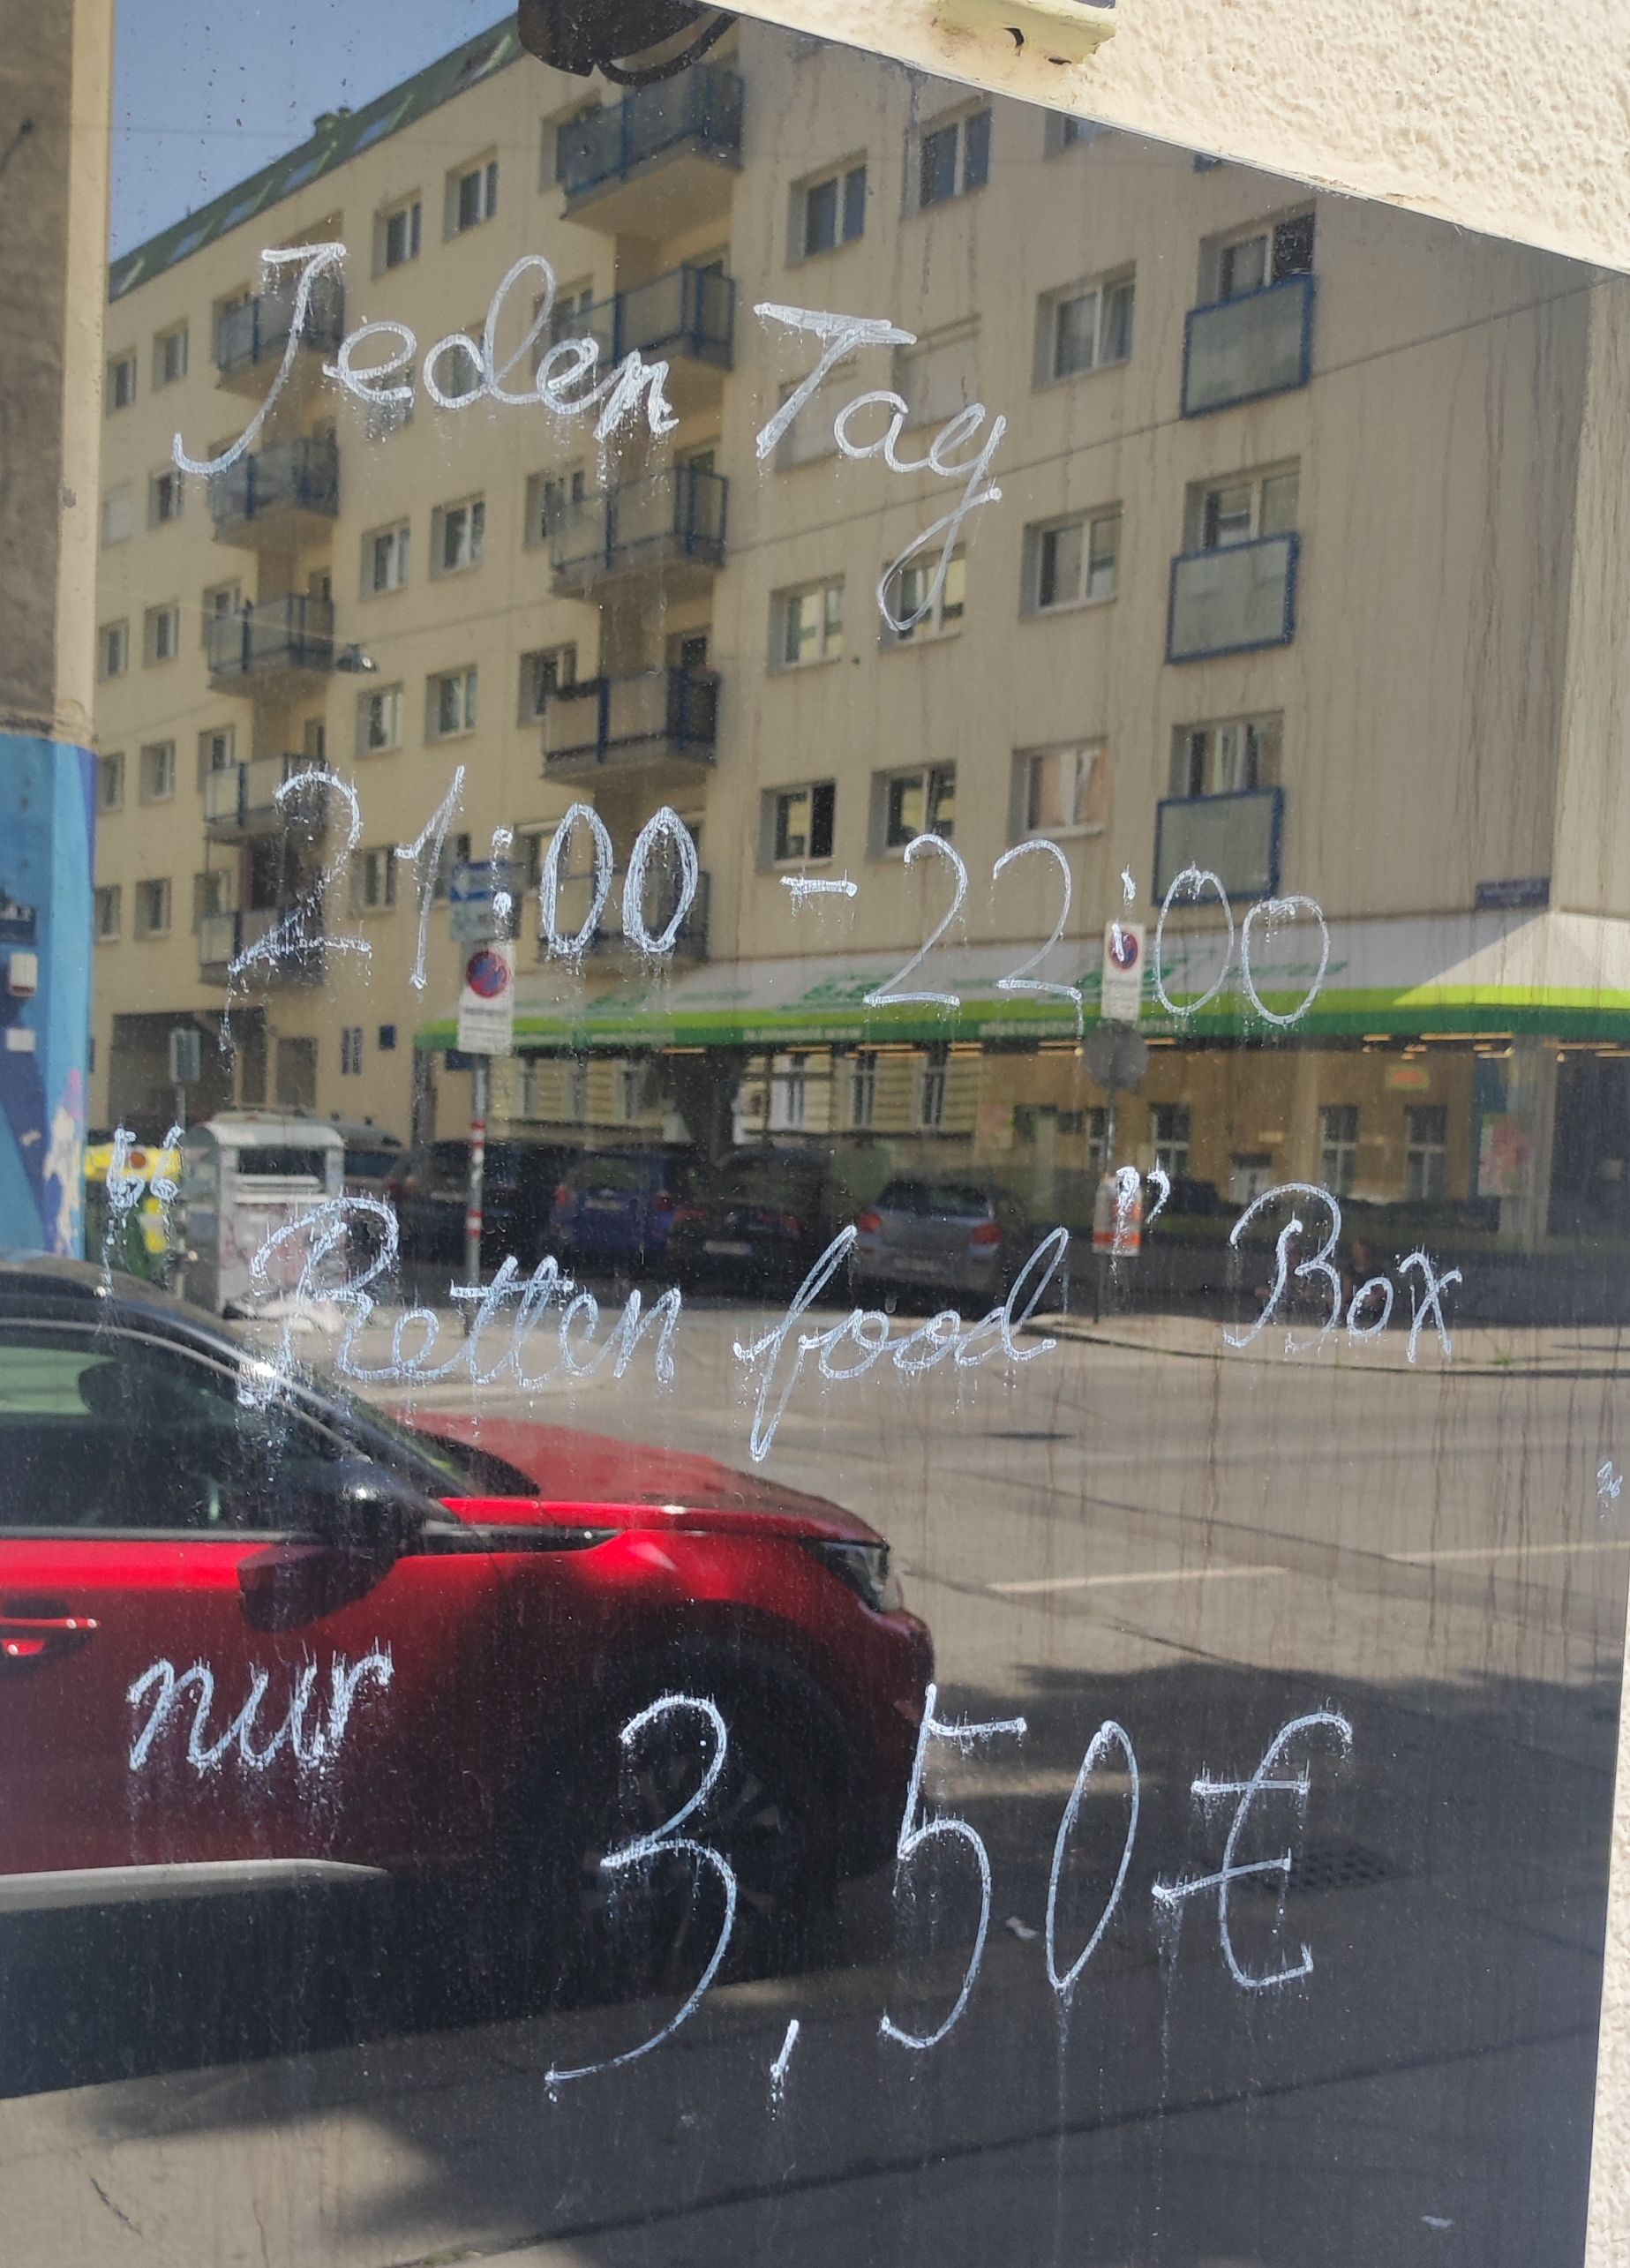 Jeden Tag
21:00 - 22:00
“Retten food” Box
nur 3,50€